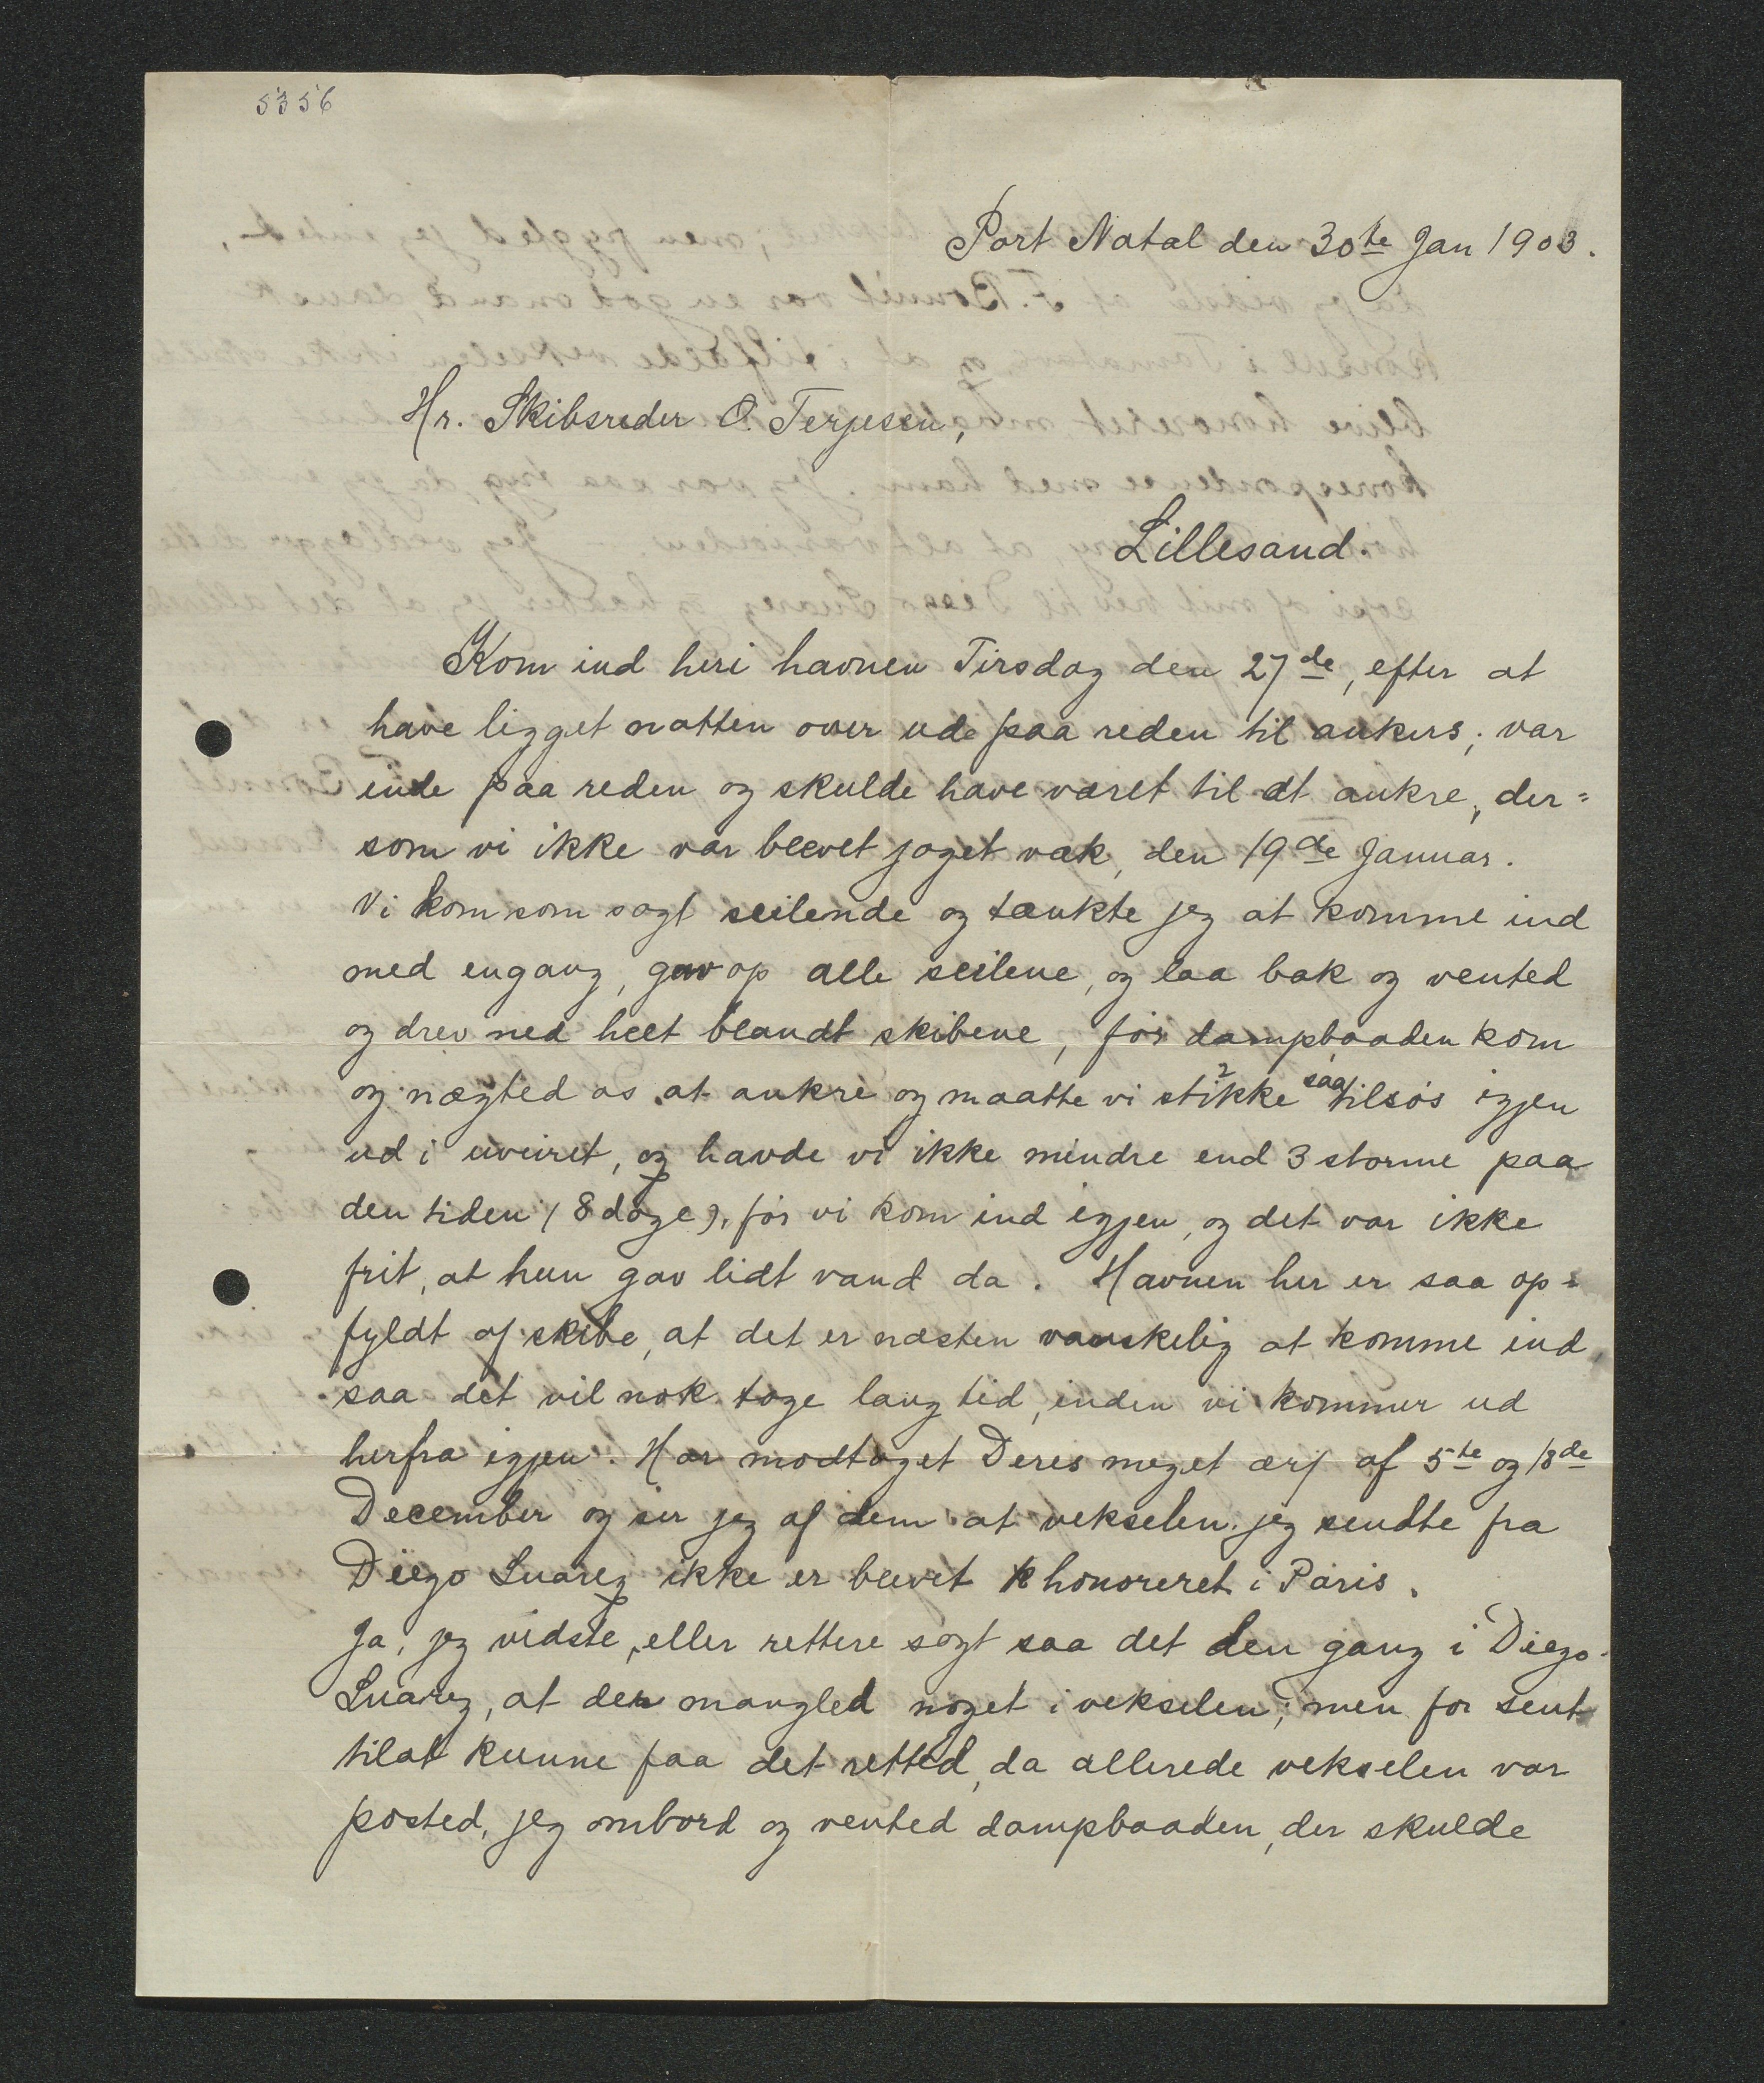 5356
Port Natal den 30te Jan 1903.
Hr. Skibsreder O. Terjesen,
Lillesand.
Kom ind heri havnen Tirsdag den 27de, efter at
have ligget natten over ude paa reden til ankers; var
inde paa reden og skulde have været til at ankre, der=
som vi ikke var blevet jaget væk, den 19de Januar.
Vi kom som sagt seilende og tænkte jeg at komme ind
med engang, gav op alle seilene, og laa bak og vented
og drev ned helt blandt skibene, før dampbaaden kom
og nægted os at ankre og maatte vi stikke saa tilsøs igjen
ud i uveiret, og havde vi ikke mindre end 3 storme paa
den tiden (8 døge), før vi kom ind igjen, og det var ikke
frit, at hun gav lidt vand da. Havnen her er saa op=
fyldt af skibe, at det er næsten vanskelig at komme ind,
saa det vil nok tage lang tid, inden vi kommer ud
herfra igjen. Har modtaget Deres meget ærf af 5te og 18de
December og ser jeg af dem at vekselen jeg sendte fra
Diego Suarez ikke er blevet honoreret i Paris.
Ja, jeg vidste, eller rettere sagt saa det den gang i Diego
Suarez, at der mangled noget i vekselen; men for sent
tilat kunne faa det retted, da allerede vekselen var
posted, jeg ombord og vented dampbaaden, der skulde